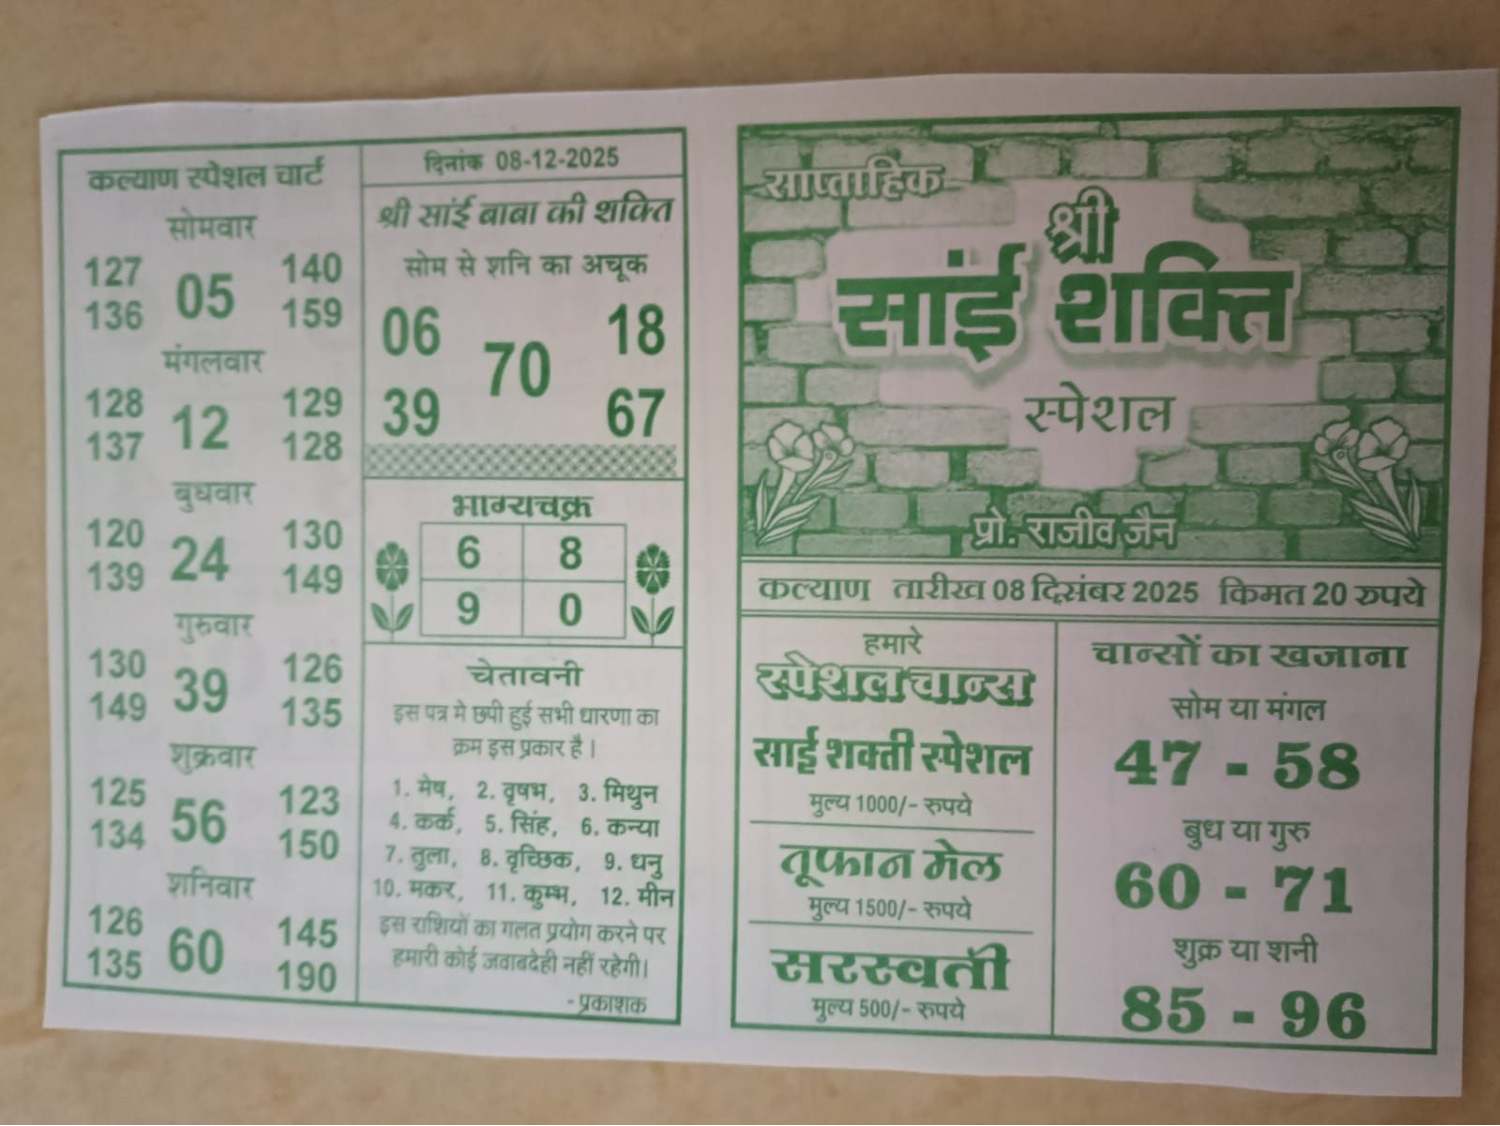 कल्याण स्पेशल चार्ट
सोमवार
127 05 140
136 159
मंगलवार
128 12 129
137 128
बुधवार
120 24 130
139 149
गुरुवार
130 39 126
149 135
शुक्रवार
125 56 123
134 150
शनिवार
126 60 145
135 190
दिनांक 08-12-2025
श्री सांई बाबा की शक्ति
सोम से शनि का अचूक
06 18
70
39 67
भाग्यचक्र
6 8
9 0
चेतावनी
इस पत्र मे छपी हुई सभी धारणा का
क्रम इस प्रकार है।
1. मेष, 2. वृषभ, 3. मिथुन
4. कर्क, 5. सिंह, 6. कन्या
7. तुला, 8. वृच्छिक, 9. धनु
10. मकर, 11. कुम्भ, 12. मीन
इस राशियों का गलत प्रयोग करने पर
हमारी कोई जवाबदेही नहीं रहेगी।
- प्रकाशक
साप्ताहिक
श्री
सांई शक्ति
स्पेशल
प्रो. राजीव जैन
कल्याण तारीख 08 दिसंबर 2025 किमत 20 रुपये
हमारे
स्पेशल चान्स
साई शक्ती स्पेशल
मुल्य 1000/- रुपये
तूफान मेल
मुल्य 1500/- रुपये
सरस्वती
मुल्य 500/- रुपये
चान्सों का खजाना
सोम या मंगल
47 - 58
बुध या गुरु
60 - 71
शुक्र या शनी
85 - 96